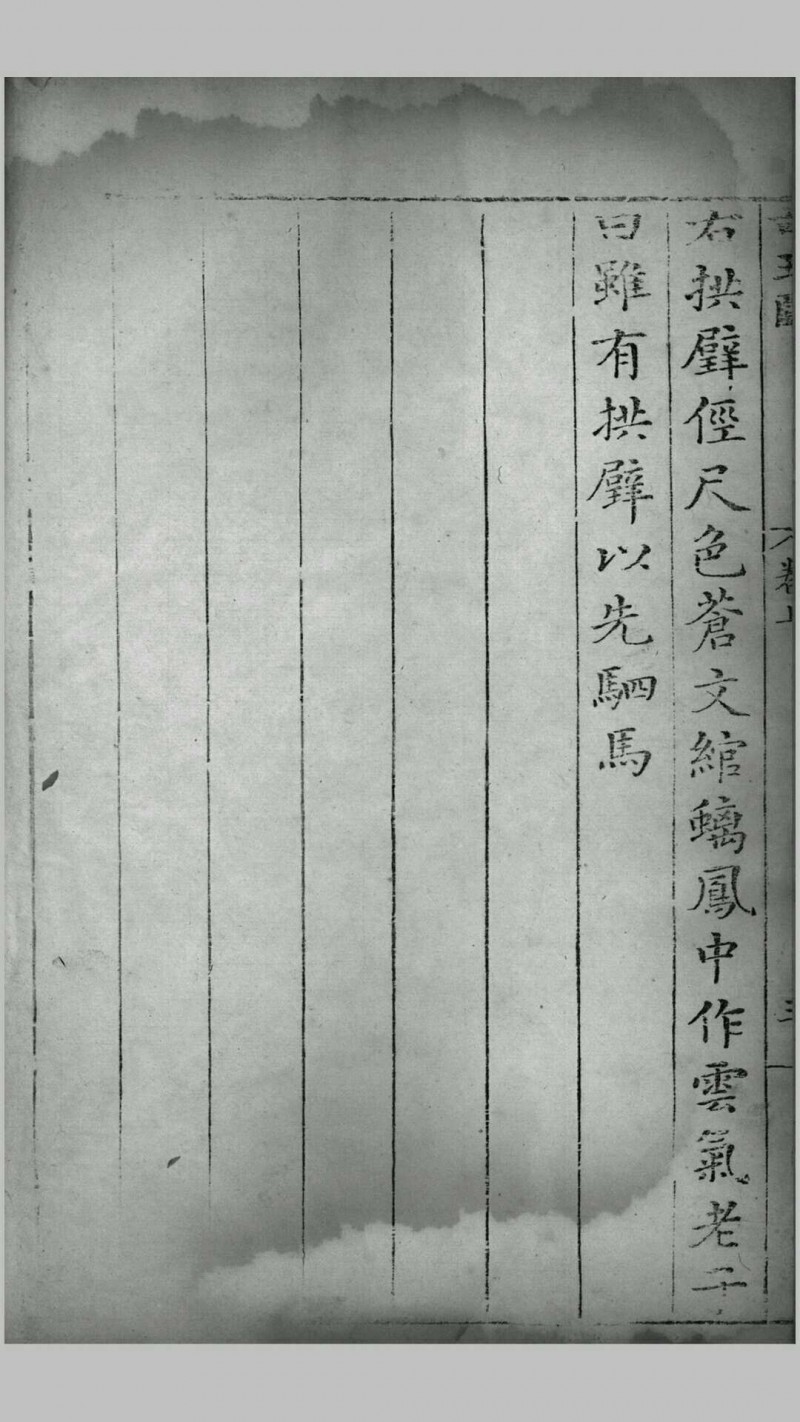 古玉圖
卷上
三
右拱璧俓尺色蒼文綰螭鳳中作雲氣老子
曰雖有拱璧以先駟馬